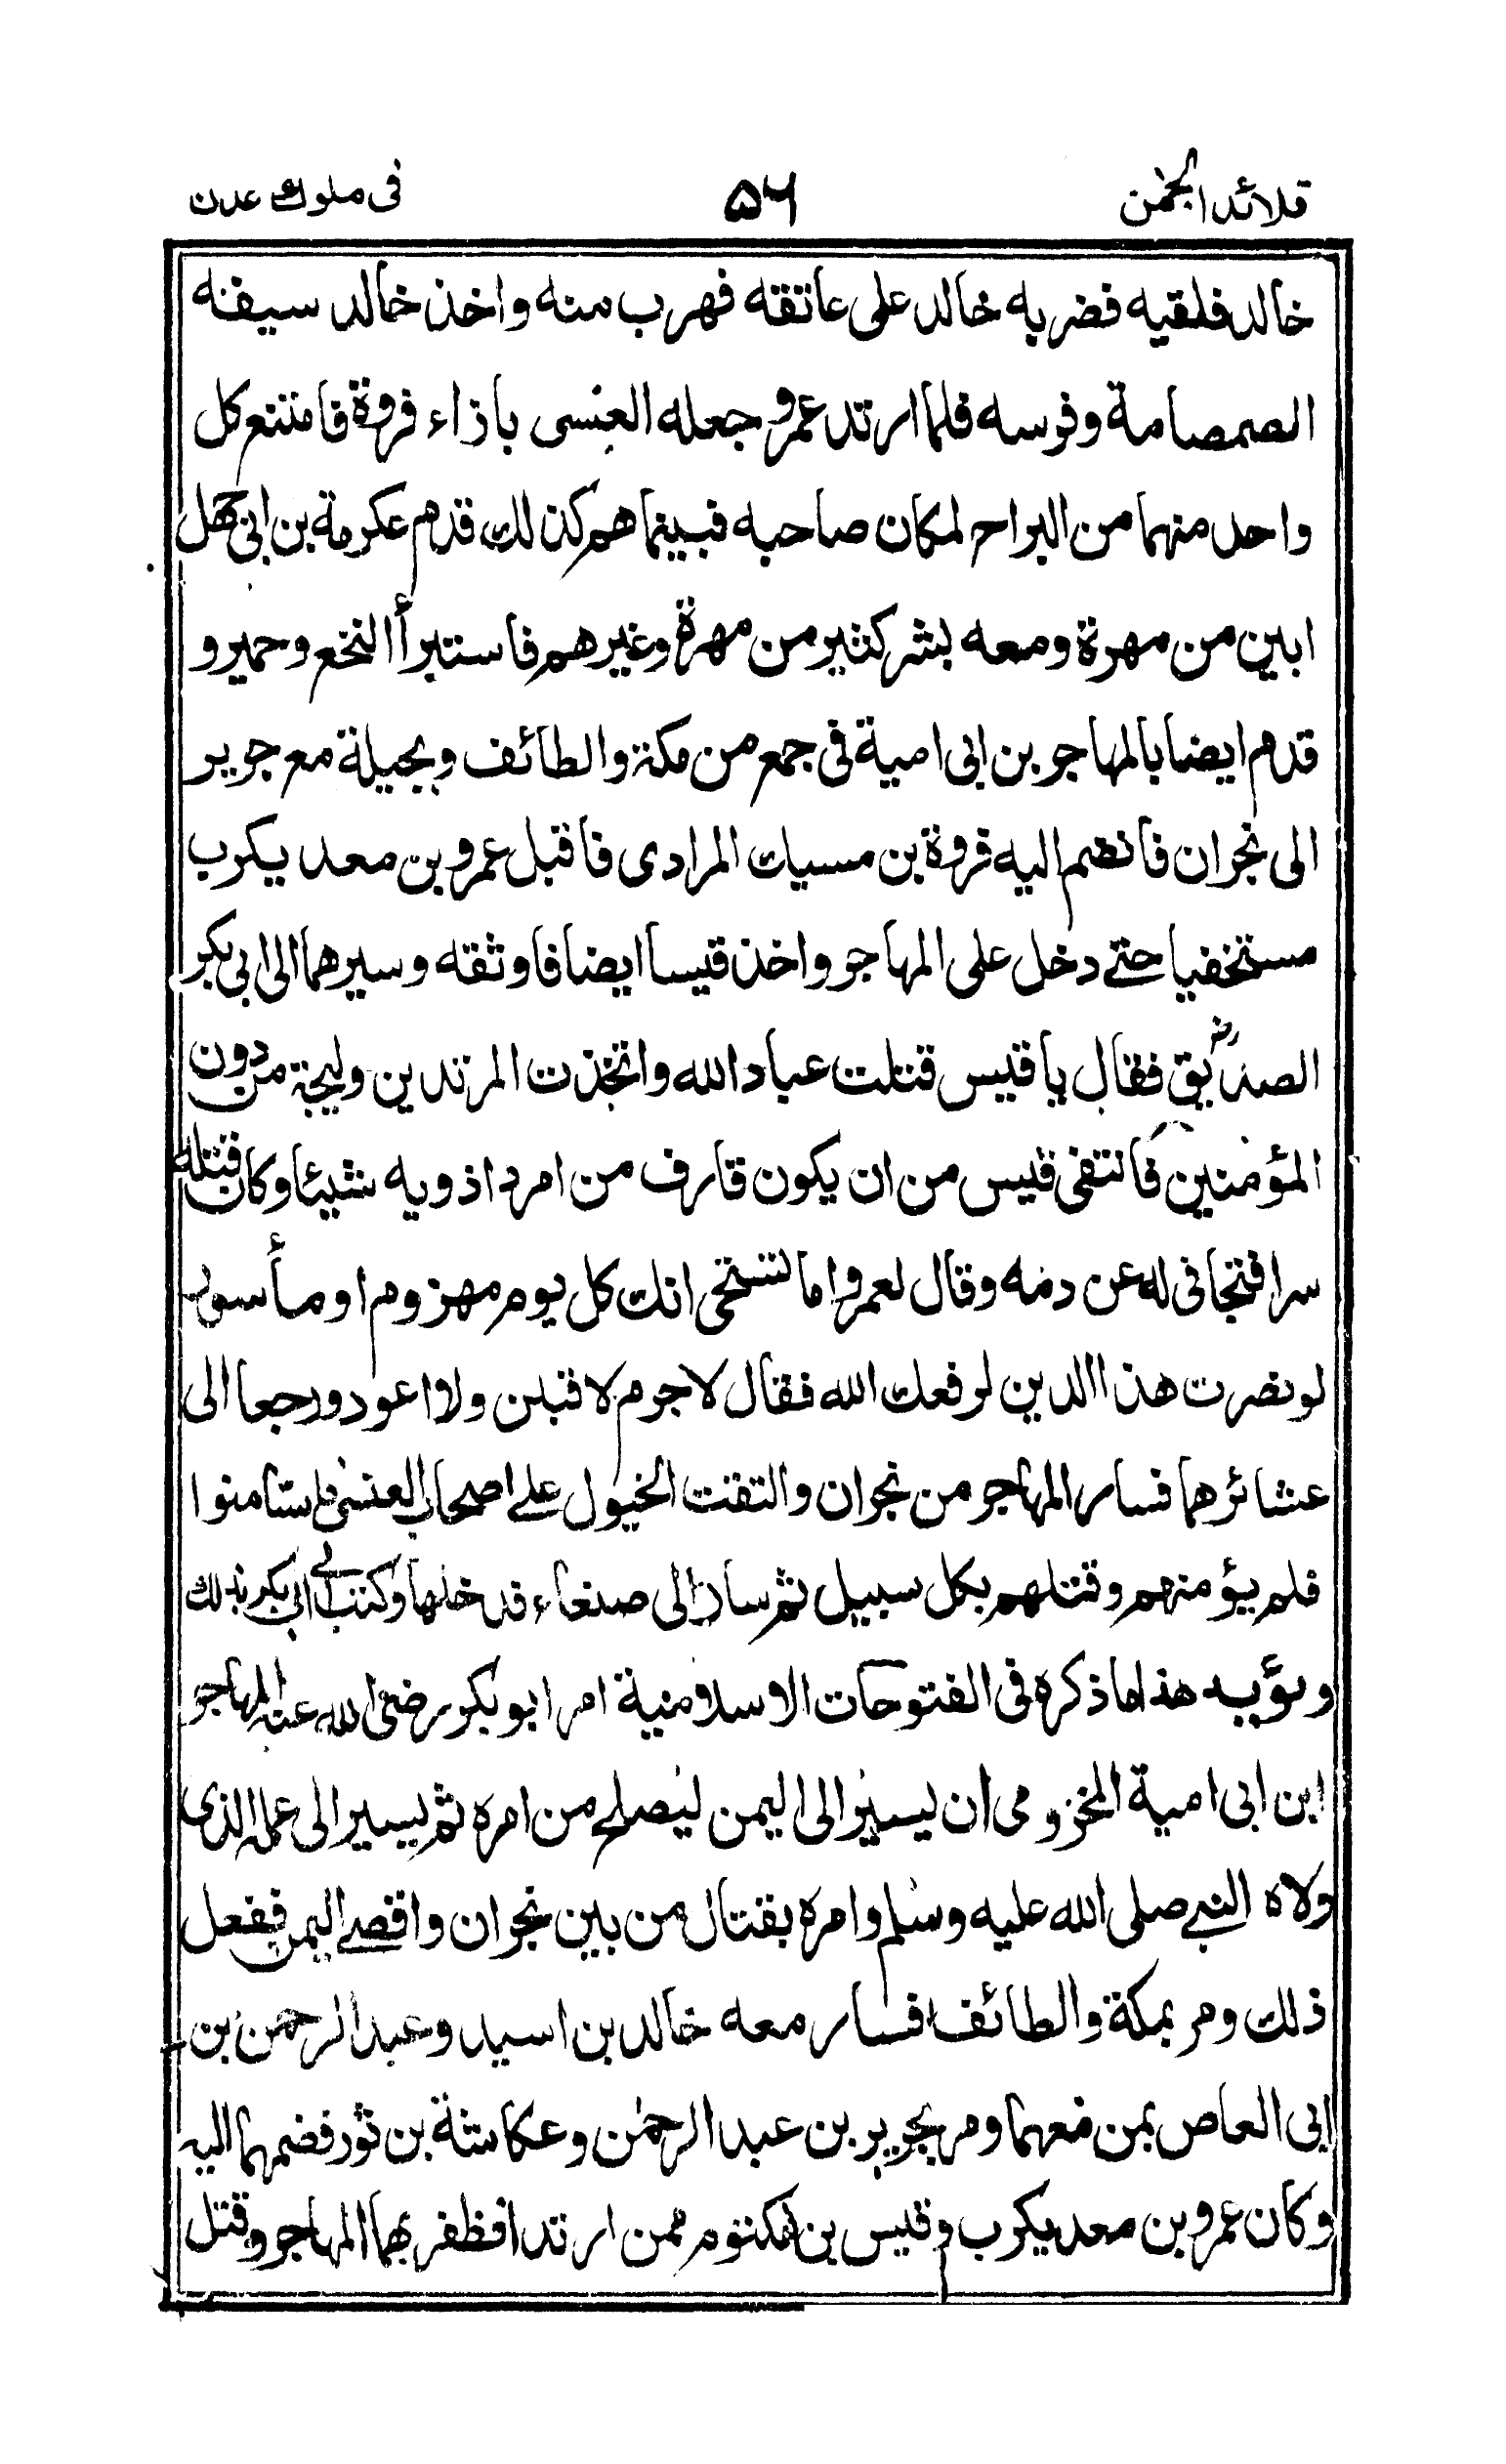 قلائد الجمن ٥٦ فى ملوك عدن
خالد فلقيه فضربه خالد على عاتقه فهرب منه واخذ خالد سيفه
الصمصامة وفرسه فلما ارتد عمرو جعله العنسى بازاء فروة فامتنع كل
واحد منهما من البراح لمكان صاحبه فبينما هم كذلك قدم عكرمة بن ابى جهل
ابين من مهرة ومعه بشر كثير من مهرة وغيرهم فاستبرأ النخع وحمير و
قدم ايضا بالمهاجر بن ابى امية فى جمع من مكة والطائف وبجيلة مع جرير
الى نجران فانضم اليه فروة بن مسيك المرادى فاقبل عمرو بن معد يكرب
مستخفيا حتے دخل على المهاجر واخذ قيسا ايضا فاوثقه وسيرهما الى ابى بكر
الصديق رض فقال يا قيس قتلت عباد الله واتخذت المرتدين وليجة من دون
المؤمنين فانتفى قيس من ان يكون قارف من امر داذويه شيئا وكان قتله
سرا فتجافى له عن دمه وقال لعمرو اما تستحى انك كل يوم مهزوم او مأسور
لو نصرت هذا الدين لرفعك الله فقال لا جرم لاقبلن ولا اعود ورجعا الى
عشائرهما فسار المهاجر من نجران والتقت الخيول علے اصحاب العنسى فاستامنوا
فلم يؤمنهم وقتلهم بكل سبيل ثم سار الى صنعاء فدخلها وكتب الى ابى بكر بذلك
ويؤيد هذا ما ذكره فى الفتوحات الاسلامية امر ابو بكر رضى الله عنه المهاجر
ابن ابى امية المخزومى ان يسير الى اليمن ليصلح من امره ثم يسير الى عمله الذى
ولاه النبے صلى الله عليه وسلم وامره بقتال من بين نجران واقصے اليمن ففعل
ذلك ومر بمكة والطائف فسار معه خالد بن اسيد وعبد الرحمن بن
ابى العاص بمن معهما ومر بجرير بن عبد الرحمن وعكاشة بن ثور فضمهما اليه
وكان عمرو بن معديكرب وقيس بن مكتوم ممن ارتدا فظفر بهما المهاجر وقتل